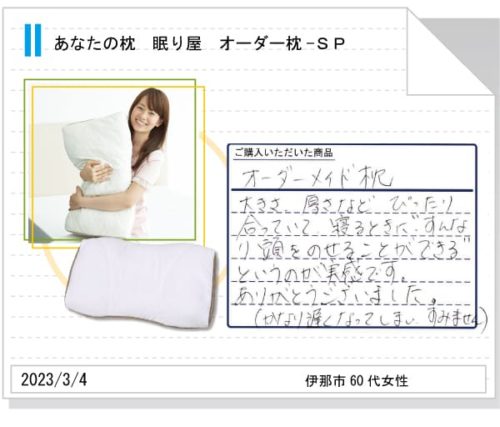 あなたの枕 眠り屋 オーダー枕-SP
ご購入いただいた商品
オーダーメイド枕
大きさ 厚さなど ぴったり
合っていて 寝るときに"すんな
り頭をのせることができる"
というのが実感です。
ありがとうございました。
(かなり遅くなってしまい すみません)
2023/3/4
伊那市60代女性